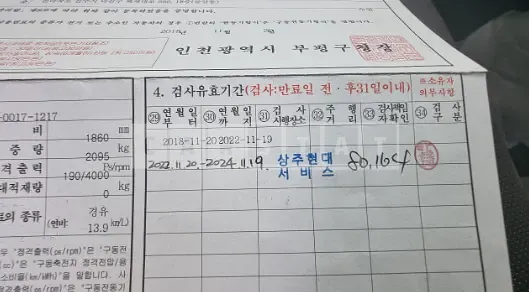 2018년 11월
인천광역시 부평구청장
4. 검사유효기간(검사:만료일 전·후31일이내)
※소유자
의무사항
㉙연월일
부터
㉚연월일
까지
㉛검사
시행장소
㉜주행
거리
㉝검사책임
자확인
㉞검사
구분
2018-11-20 2022-11-19
2022.11.20.-2024.11.19. 상주현대
서비스
80,164
-0017-1217
비 1860 mm
중량 2095 kg
격출력 190/4000 Ps/rpm
대적재량 0 kg
료의 종류 경유
(연비: 13.9 km/L)
우 "정격출력(ps/rpm)"은 "구동전
(cc)"은 "구동축전지 정격전압/용
소비율(km/kWh)"을 말합니다. 사
(ps/rpm)"은 "구동전동기